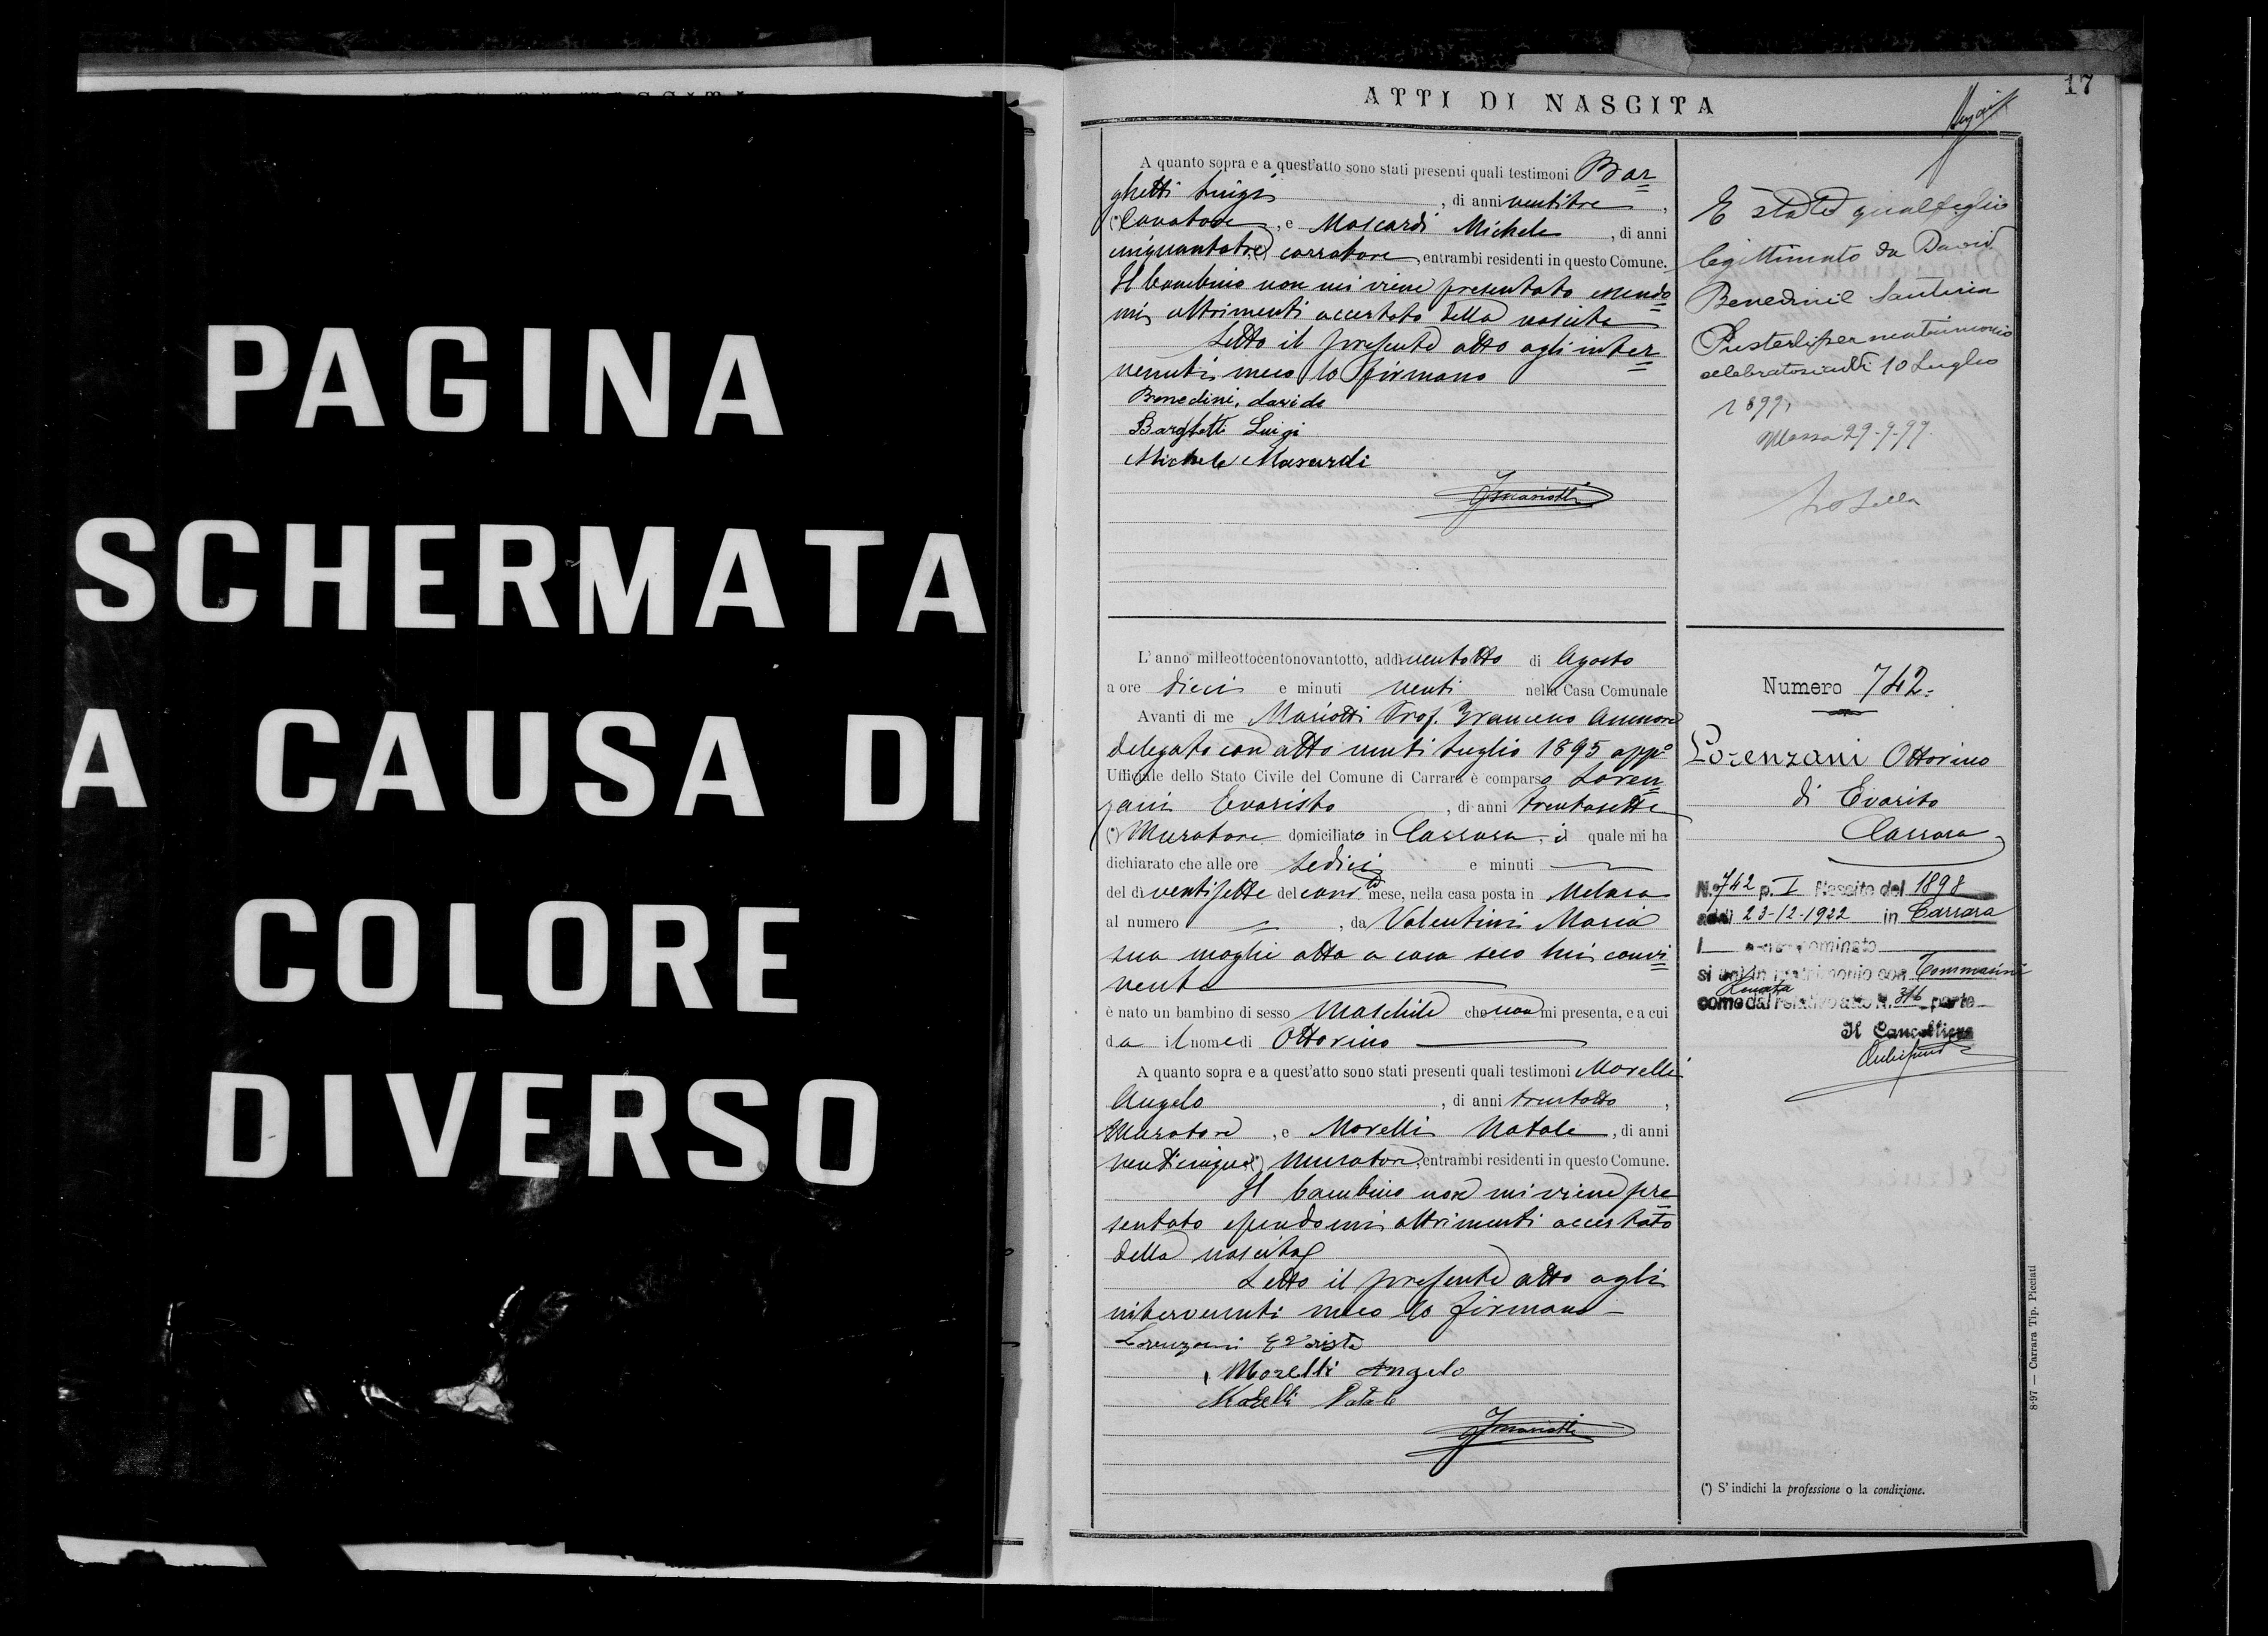 PAGINA
SCHERMATA
A CAUSA DI
COLORE
DIVERSO
ATTI DI NASCITA
17
A quanto sopra e a quest'atto sono stati presenti quali testimoni Bar=
ghetti Luigi, di anni ventitre,
(*) Cavatore, e Mascardi Michele, di anni
cinquantatre (*) carratore, entrambi residenti in questo Comune.
Il bambino non mi viene presentato essendo=
mi altrimenti accertato della nascita
Letto il presente atto agli inter=
venuti meco lo firmano
Benedini, davide
Barghetti Luigi
Michele Mascardi
FMariotti
E stato qual figlio
legittimato da David
Benedini e Santina
per matrimonio
celebratosi addì 10 Luglio
1899.
Massa 29-9-99.
L'anno milleottocentonovantotto, addì ventotto di Agosto
a ore dieci e minuti venti nella Casa Comunale
Avanti di me Mariotti Prof. Francesco Assessore
delegato con atto venti Luglio 1895 appo
Ufficiale dello Stato Civile del Comune di Carrara è comparso Loren=
zani Evaristo, di anni trentasette
(*) Muratore domiciliato in Carrara, il quale mi ha
dichiarato che alle ore sedici e minuti —
del dì ventisette del corrte mese, nella casa posta in Melara
al numero =, da Valentini Maria
sua moglie atta a casa seco lui convi=
vente
è nato un bambino di sesso Maschile che non mi presenta, e a cui
da il nome di Ottorino
A quanto sopra e a quest'atto sono stati presenti quali testimoni Morelli
Angelo, di anni trentotto,
Muratore, e Morelli Natale, di anni
venticinque (*) Muratore, entrambi residenti in questo Comune.
Il bambino non mi viene pre=
sentato essendomi altrimenti accertato
della nascita
Letto il presente atto agli
intervenuti meco lo firmano —
Lorenzani Evaristo
Morelli Angelo
Morelli Natale
FMariotti
Numero 742.
Lorenzani Ottorino
di Evaristo
Carrara
N. 742 p. I Nascite del 1898
addì 23-12-1922 in Carrara
l contronominato
si unì in matrimonio con Tommasini
Renata
come dal relativo atto N. 316 parte
Il Cancelliere
(*) S'indichi la professione o la condizione.
8-97 — Carrara Tip. Picciati